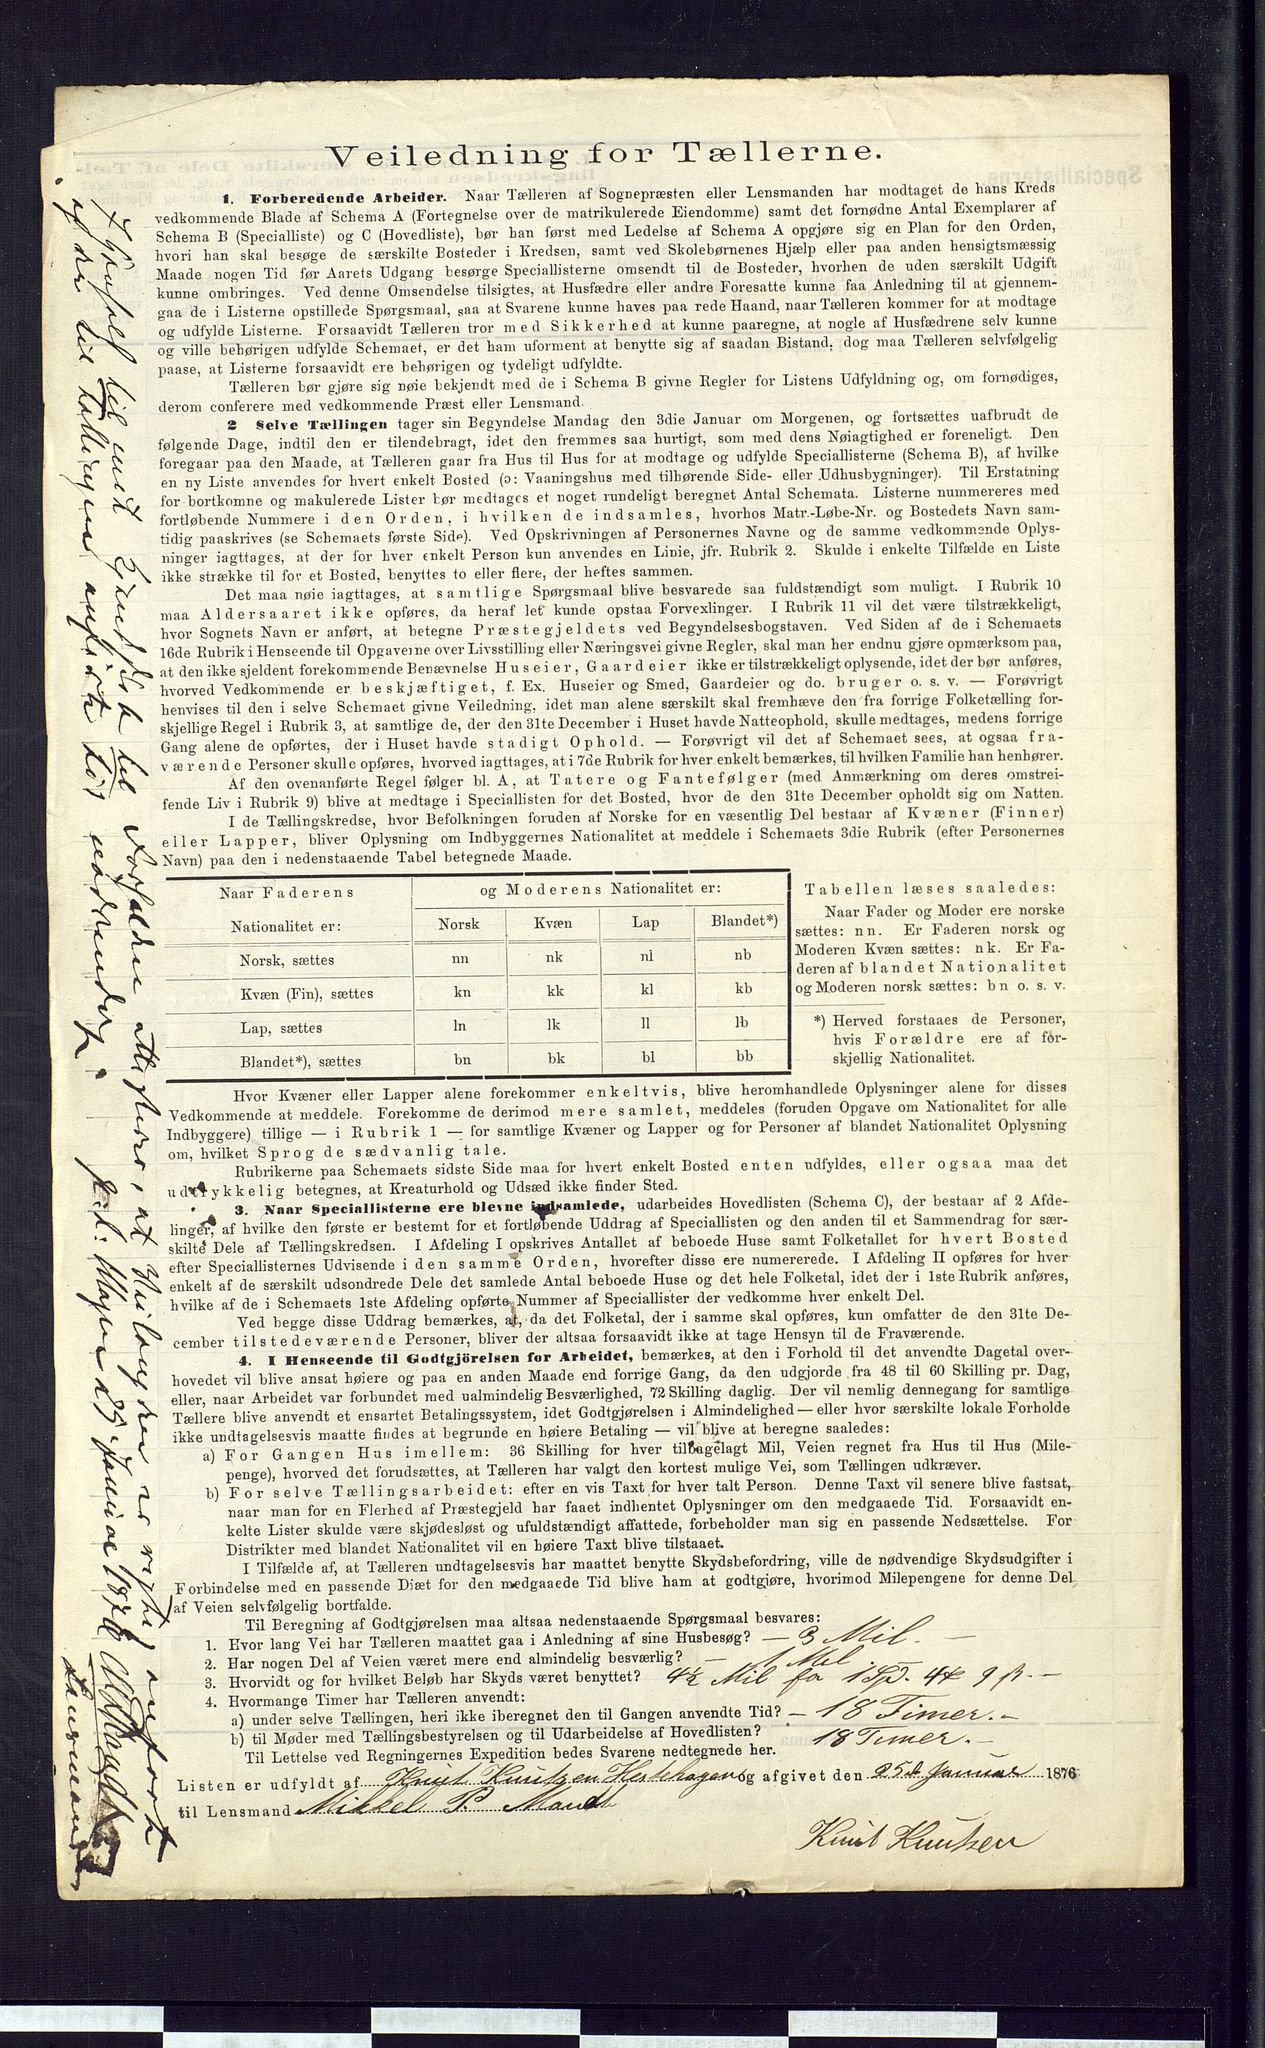 Veiledning for Tællerne.
1. Forberedende Arbeider. Naar Tælleren af Sognepræsten eller Lensmanden har modtaget de hans Kreds
vedkommende Blade af Schema A (Fortegnelse over de matrikulerede Eiendomme) samt det fornødne Antal Exemplarer af
Schema B (Specialliste) og C (Hovedliste), bør han først med Ledelse af Schema A opgjøre sig en Plan for den Orden,
hvori han skal besøge de særskilte Bosteder i Kredsen, samt ved Skolebørnenes Hjælp eller paa anden hensigtsmæssig
Maade nogen Tid før Aarets Udgang besørge Speciallisterne omsendt til de Bosteder, hvorhen de uden særskilt Udgift
kunne ombringes. Ved denne Omsendelse tilsigtes, at Husfædre eller andre Foresatte kunne faa Anledning til at gjennem-
gaa de i Listerne opstillede Spørgsmaal, saa at Svarene kunne haves paa rede Haand, naar Tælleren kommer for at modtage
og udfylde Listerne. Forsaavidt Tælleren tror med Sikkerhed at kunne paaregne, at nogle af Husfædrene selv kunne
og ville behørigen udfylde Schemaet, er det ham uforment at benytte sig af saadan Bistand, dog maa Tælleren selvfølgelig
paase, at Listerne forsaavidt ere behørigen og tydeligt udfyldte.
Tælleren bør gjøre sig nøie bekjendt med de i Schema B givne Regler for Listens Udfyldning og, om fornødiges,
derom conferere med vedkommende Præst eller Lensmand.
2 Selve Tællingen tager sin Begyndelse Mandag den 3die Januar om Morgenen, og fortsættes uafbrudt de
følgende Dage, indtil den er tilendebragt, idet den fremmes saa hurtigt, som med dens Nøiagtighed er foreneligt. Den
foregaar paa den Maade, at Tælleren gaar fra Hus til Hus for at modtage og udfylde Speciallisterne (Schema B), af hvilke
en ny Liste anvendes for hvert enkelt Bosted (ɔ: Vaaningshus med tilhørende Side- eller Udhusbygninger). Til Erstatning
for bortkomne og makulerede Lister bør medtages et noget rundeligt beregnet Antal Schemata. Listerne nummereres med
fortløbende Nummere i den Orden, i hvilken de indsamles, hvorhos Matr.-Løbe-Nr. og Bostedets Navn sam-
tidig paaskrives (se Schemaets første Side). Ved Opskrivningen af Personernes Navne og de samme vedkommende Oplys-
ninger iagttages, at der for hver enkelt Person kun anvendes en Linie, jfr. Rubrik 2. Skulde i enkelte Tilfælde en Liste
ikke strække til for et Bosted, benyttes to eller flere, der heftes sammen.
Det maa nøie iagttages, at samtlige Spørgsmaal blive besvarede saa fuldstændigt som muligt. I Rubrik 10
maa Aldersaaret ikke opføres, da heraf let kunde opstaa Forvexlinger. I Rubrik 11 vil det være tilstrækkeligt,
hvor Sognets Navn er anført, at betegne Præstegjeldets ved Begyndelsesbogstaven. Ved Siden af de i Schemaets
16de Rubrik i Henseende til Opgaverne over Livsstilling eller Næringsvei givne Regler, skal man her endnu gjøre opmærksom paa,
at den ikke sjeldent forekommende Benævnelse Huseier, Gaardeier ikke er tilstrækkeligt oplysende, idet der bør anføres,
hvorved Vedkommende er beskjæftiget, f. Ex. Huseier og Smed, Gaardeier og do. bruger o. s. v. — Forøvrigt
henvises til den i selve Schemaet givne Veiledning, idet man alene særskilt skal fremhæve den fra forrige Folketælling for-
skjellige Regel i Rubrik 3, at samtlige de, der den 31te December i Huset havde Natteophold, skulle medtages, medens forrige
Gang alene de opførtes, der i Huset havde stadigt Ophold. — Forøvrigt vil det af Schemaet sees, at ogsaa fra-
værende Personer skulle opføres, hvorved iagttages, at i 7de Rubrik for hver enkelt bemærkes, til hvilken Familie han henhører.
Af den ovenanførte Regel følger bl. A, at Tatere og Fantefølger (med Anmærkning om deres omstrei-
fende Liv i Rubrik 9) blive at medtage i Speciallisten for det Bosted, hvor de den 31te December opholdt sig om Natten.
I de Tællingskredse, hvor Befolkningen foruden af Norske for en væsentlig Del bestaar af Kvæner (Finner)
eller Lapper, bliver Oplysning om Indbyggernes Nationalitet at meddele i Schemaets 3die Rubrik (efter Personernes
Navn) paa den i nedenstaaende Tabel betegnede Maade.
Naar Faderens og Moderens Nationalitet er:
Nationalitet er: Norsk Kvæn Lap Blandet*)
Norsk, sættes nn nk nl nb
Kvæn (Fin), sættes kn kk kl kb
Lap, sættes ln lk ll lb
Blandet*), sættes bn bk bl bb
Tabellen læses saaledes:
Naar Fader og Moder ere norske
sættes: nn. Er Faderen norsk og
Moderen Kvæn sættes: nk. Er Fa-
deren af blandet Nationalitet
og Moderen norsk sættes: bn o. s. v.
*) Herved forstaaes de Personer,
hvis Forældre ere af for-
skjellig Nationalitet.
Hvor Kvæner eller Lapper alene forekommer enkeltvis, blive heromhandlede Oplysninger alene for disses
Vedkommende at meddele. Forekomme de derimod mere samlet, meddeles (foruden Opgave om Nationalitet for alle
Indbyggere) tillige — i Rubrik 1 — for samtlige Kvæner og Lapper og for Personer af blandet Nationalitet Oplysning
om, hvilket Sprog de sædvanlig tale.
Rubrikerne paa Schemaets sidste Side maa for hvert enkelt Bosted enten udfyldes, eller ogsaa maa det
udtrykkelig betegnes, at Kreaturhold og Udsæd ikke finder Sted.
3. Naar Speciallisterne ere blevne indsamlede, udarbeides Hovedlisten (Schema C), der bestaar af 2 Afde-
linger, af hvilke den første er bestemt for et fortløbende Uddrag af Speciallisten og den anden til et Sammendrag for sær-
skilte Dele af Tællingskredsen. I Afdeling I opskrives Antallet af beboede Huse samt Folketallet for hvert Bosted
efter Speciallisternes Udvisende i den samme Orden, hvorefter disse ere numererede. I Afdeling II opføres for hver
enkelt af de særskilt udsondrede Dele det samlede Antal beboede Huse og det hele Folketal, idet der i 1ste Rubrik anføres,
hvilke af de i Schemaets 1ste Afdeling opførte Nummer af Speciallister der vedkomme hver enkelt Del.
Ved begge disse Uddrag bemærkes, at, da det Folketal, der i samme skal opføres, kun omfatter de den 31te De-
cember tilstedeværende Personer, bliver der altsaa forsaavidt ikke at tage Hensyn til de Fraværende.
4. I Henseende til Godtgjörelsen for Arbeidet, bemærkes, at den i Forhold til det anvendte Dagetal over-
hovedet vil blive ansat høiere og paa en anden Maade end forrige Gang, da den udgjorde fra 48 til 60 Skilling pr. Dag,
eller, naar Arbeidet var forbundet med ualmindelig Besværlighed, 72 Skilling daglig. Der vil nemlig dennegang for samtlige
Tællere blive anvendt et ensartet Betalingssystem, idet Godtgjørelsen i Almindelighed — eller hvor særskilte lokale Forholde
ikke undtagelsesvis maatte findes at begrunde en høiere Betaling — vil blive at beregne saaledes:
a) For Gangen Hus imellem: 36 Skilling for hver tilbagelagt Mil, Veien regnet fra Hus til Hus (Mile-
penge), hvorved det forudsættes, at Tælleren har valgt den kortest mulige Vei, som Tællingen udkræver.
b) For selve Tællingsarbeidet: efter en vis Taxt for hver talt Person. Denne Taxt vil senere blive fastsat,
naar man for en Flerhed af Præstegjeld har faaet indhentet Oplysninger om den medgaaede Tid. Forsaavidt en-
kelte Lister skulde være skjødesløst og ufuldstændigt affattede, forbeholder man sig en passende Nedsættelse. For
Distrikter med blandet Nationalitet vil en høiere Taxt blive tilstaaet.
I Tilfælde af, at Tælleren undtagelsesvis har maattet benytte Skydsbefordring, ville de nødvendige Skydsudgifter i
Forbindelse med en passende Diæt for den medgaaede Tid blive ham at godtgjøre, hvorimod Milepengene for denne Del
af Veien selvfølgelig bortfalde.
Til Beregning af Godtgjørelsen maa altsaa nedenstaaende Spørgsmaal besvares:
1. Hvor lang Vei har Tælleren maattet gaa i Anledning af sine Husbesøg? — 3 Mil. —
2. Har nogen Del af Veien været mere end almindelig besværlig? — 1 Mil.
3. Hvorvidt og for hvilket Beløb har Skyds været benyttet? 4½ Mil for 1 Spd. 4
4. Hvormange Timer har Tælleren anvendt:
a) under selve Tællingen, heri ikke iberegnet den til Gangen anvendte Tid? — 18 Timer. —
b) til Møder med Tællingsbestyrelsen og til Udarbeidelse af Hovedlisten? 18 Timer. —
Til Lettelse ved Regningernes Expedition bedes Svarene nedtegnede her.
Listen er udfyldt af Knut Knutsen Hestehagen og afgivet den 25de Januar 1876
til Lensmand Mikkel P. Mandt
Knut Knutsen
I Henhold til mit Kjendskab til Forholdene attesteres, at Veilængden er rigtig anført
og den til tællingen anførte Tid nødvendig.
25 Januar 1876
Lensmand